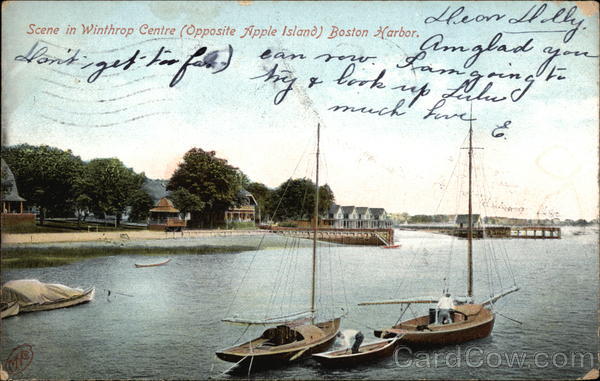 Scene in Winthrop Centre (Opposite Apple Island) Boston Harbor.
Dear Dolly,
Am glad you
can row. I am going to
try & look up Lulu
much love
E.
Don't get too far)
CardCow.com